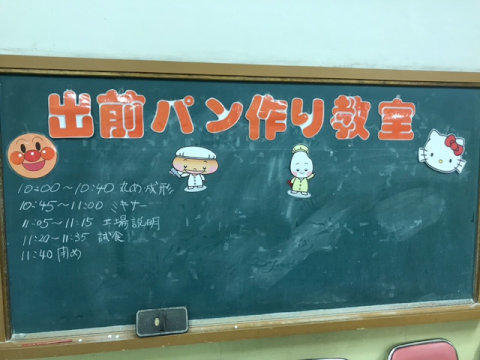 出前パン作り教室
10:00～10:40 丸め成形
10:45～11:00 ミキサー
11:05～11:15 工場説明
11:20～11:35 試食
11:40 閉め